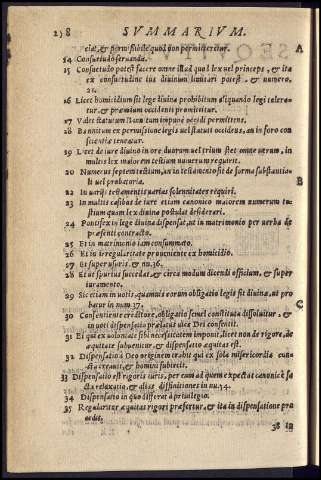 258 SVMMARIVM.
ciat, & permissibile quod non permitteretur.
14 Consuetudo seruanda.
15 Consuetudo potest facere omne illud quod lex vel princeps, & ita
ex consuetudine ius diuinum limitari potest. & numero.
21.
16 Licet homicidium sit lege diuina prohibitum aliquando legi tolera-
tur & præmium occidenti promittitur.
17 Valet statutum bannitum impunè occidi permittens.
18 Bannitum ex permissione legis vel statuti occidens, an in foro con
scientiæ teneatur.
19 Licet de iure diuino in ore duorum vel trium stet omne verum, in
multis lex maiorem testium numerum requirit.
20 Numerus septem testium, an in testamento sit de forma substantia-
li vel probatoria.
22 In utrisq; testamentis varias solennitates requiri.
23 In multis casibus de iure etiam canonico maiorem numerum te-
stium quàm lex diuina postulat desiderari.
24 Pontifex in lege diuina dispensat, ut in matrimonio per verba de
præsenti contracto.
25 Et in matrimonio iam consummato.
26 Et in irregularitate proueniente ex homicidio.
27 Et super usuris. & nu. 36.
28 Et ut spurius succedat, & circa modum dicendi officium, & super
iuramento.
29 Sic etiam in votis, quamuis eorum obligatio legis sit diuinæ, ut pro
batur in num. 37.
30 Consentiente creditore, obligatio semel constituta dissoluitur, &
in voti dispensatio prælatus vice Dei consentit.
31 Et qui ex voluntate sibi necessitatem imponit, licet non de rigore, de
æquitate subuenitur, & dispensatio æquitas est.
32 Dispensatio à Deo originem trahit qui ex sola misericordia cun-
cta creauit, & homini subiecit.
33 Dispensatio est rigoris iuris, per eum ad quem expectat canonicè fa
cta relaxatio, & aliæ diffinitiones in nu. 34.
34 Dispensatio in quo differat à priuilegio.
35 Regulariter æquitas rigori præfertur, & ita in dispensatione pro
cedit.
36 In
A
B
C